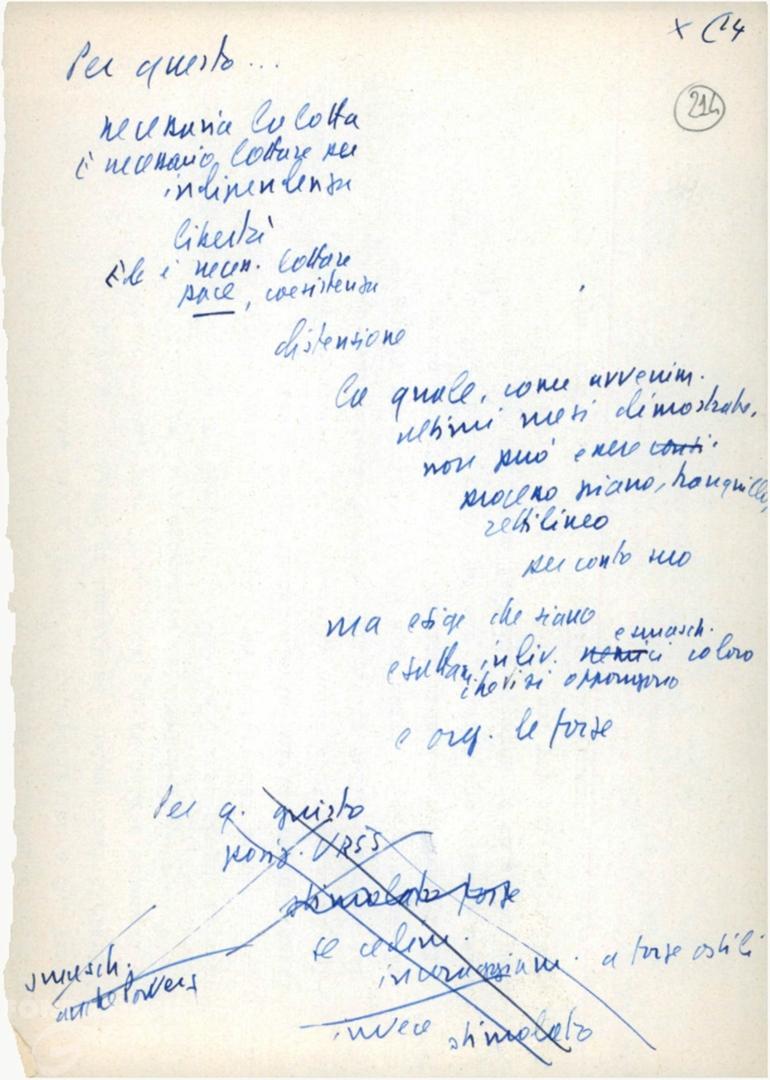 x C 14
214
Per questo...
necessaria la lotta
è necessario lottare per
indipendenza
libertà
è necess. lottare
pace, coesistenza
distensione
la quale, come avvenim.
ultimi mesi dimostrato,
non può essere
processo piano, tranquillo,
rettilineo
per conto suo
ma esige che siano
e smasch.
indiv. nemici coloro
che vi si oppongono
e org. le forze
Per q. giusta
posiz. URSS
stimolato forze
se cedim.
incoraggiam. a forze ostili
smasch.
anche
invece stimolato